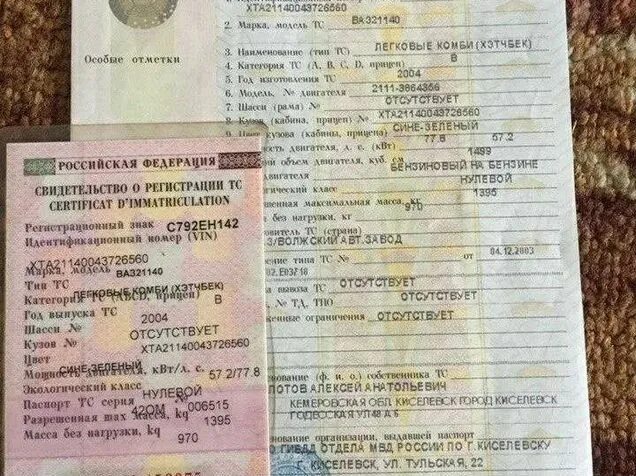 XTA21140043726560
2. Марка, модель ТС ВАЗ21140
3. Наименование (тип ТС) ЛЕГКОВЫЕ КОМБИ (ХЭТЧБЕК)
Особые отметки
4. Категория ТС (А, В, С, D, прицеп) В
5. Год изготовления ТС 2004
6. Модель, № двигателя 2111-3864356
7. Шасси (рама) № ОТСУТСТВУЕТ
8. Кузов (кабина, прицеп) № XTA21140043726560
9. Цвет кузова (кабины, прицепа) СИНЕ-ЗЕЛЕНЫЙ
двигателя, л. с. (кВт) 77.8 57.2
объем двигателя, куб. см 1499
двигателя БЕНЗИНОВЫЙ НА БЕНЗИНЕ
класс НУЛЕВОЙ
максимальная масса, кг 1395
без нагрузки, кг 970
ТС (страна)
ВОЛЖСКИЙ АВТ.ЗАВОД
типа ТС № от 04.12.2003
вывоза ТС ОТСУТСТВУЕТ
№ ТД, ТПО ОТСУТСТВУЕТ
ограничения ОТСУТСТВУЕТ
(ф. и. о.) собственника ТС
АЛЕКСЕЙ АНАТОЛЬЕВИЧ
КЕМЕРОВСКАЯ ОБЛ КИСЕЛЕВСК ГОРОД КИСЕЛЕВСК
организации, выдавшей паспорт
ГИБДД ОТДЕЛА МВД РОССИИ ПО Г.КИСЕЛЕВСКУ
Г. КИСЕЛЕВСК, УЛ. ТУЛЬСКАЯ, 22
РОССИЙСКАЯ ФЕДЕРАЦИЯ
СВИДЕТЕЛЬСТВО О РЕГИСТРАЦИИ ТС
CERTIFICAT D'IMMATRICULATION
Регистрационный знак С792ЕН142
Идентификационный номер (VIN)
XTA21140043726560
Марка, модель ВАЗ21140
Тип ТС ЛЕГКОВЫЕ КОМБИ (ХЭТЧБЕК)
Категория ТС (ABCD, прицеп) В
Год выпуска ТС 2004
Шасси № ОТСУТСТВУЕТ
Кузов № XTA21140043726560
Цвет СИНЕ-ЗЕЛЕНЫЙ
Мощность двигателя, кВт/л. с. 57.2/77.8
Экологический класс НУЛЕВОЙ
Паспорт ТС серия 42ОМ № 006515
Разрешенная max масса, kg 1395
Масса без нагрузки, kg 970